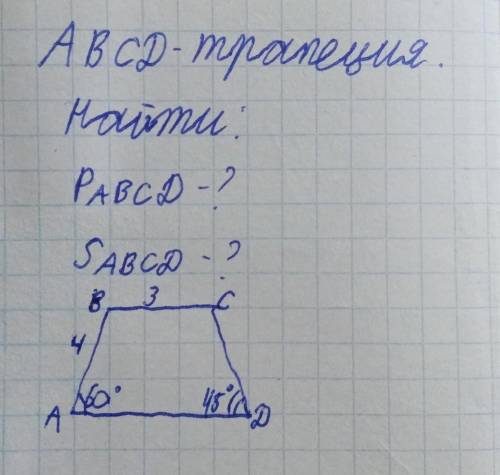 ABCD - трапеция.
Найти:
PABCD - ?
SABCD - ?
B 3 C
4
60° 45°
A D